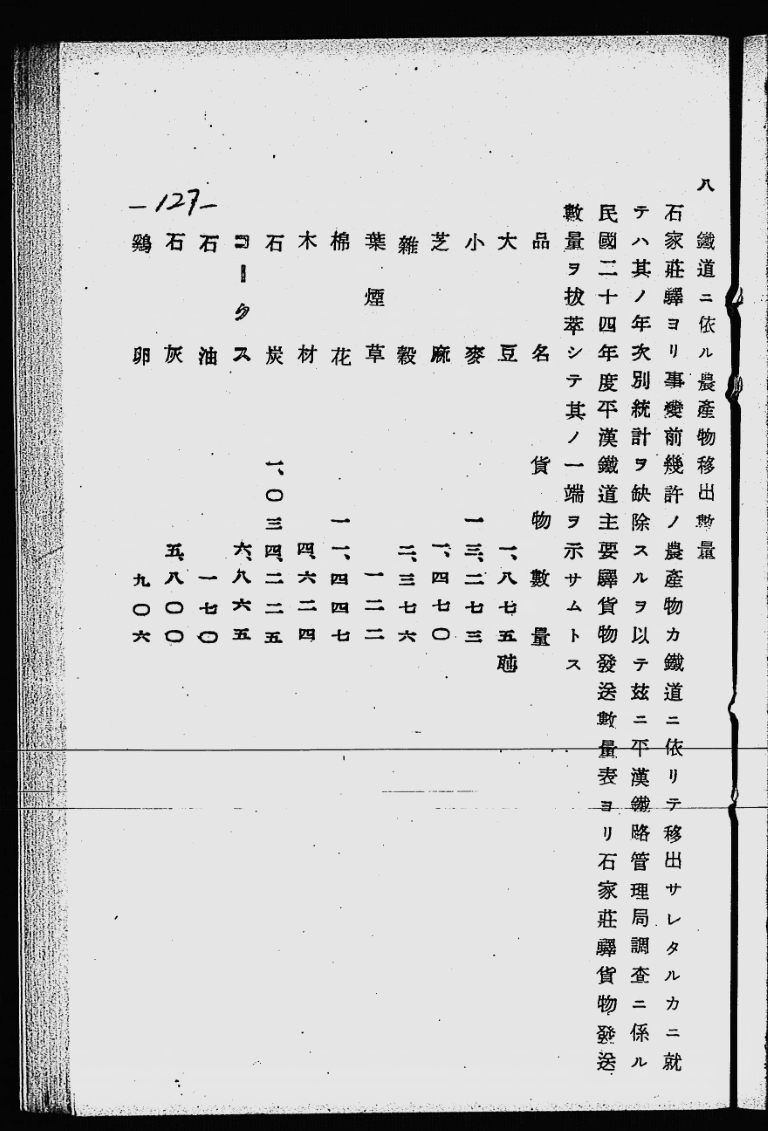 八　鐵道ニ依ル農產物移出數量
石家莊驛ヨリ事變前幾許ノ農產物カ鐵道ニ依リテ移出サレタルカニ就
テハ其ノ年次別統計ヲ缺除スルヲ以テ玆ニ平漢鐵路管理局調査ニ係ル
民國二十四年度平漢鐵道主要驛貨物發送數量表ヨリ石家莊驛貨物發送
數量ヲ拔萃シテ其ノ一端ヲ示サムトス
品名　貨物數量
大豆　一、八七五瓲
小麥　一三、二七三
芝麻　一、四七〇
雜穀　二、三七六
葉煙草　一二二
棉花　一一、四四七
木材　四、六二四
石炭　一、〇三四、二二五
コークス　六、八六五
石油　一七〇
石灰　五、八〇〇
鷄卵　九〇六
—127—